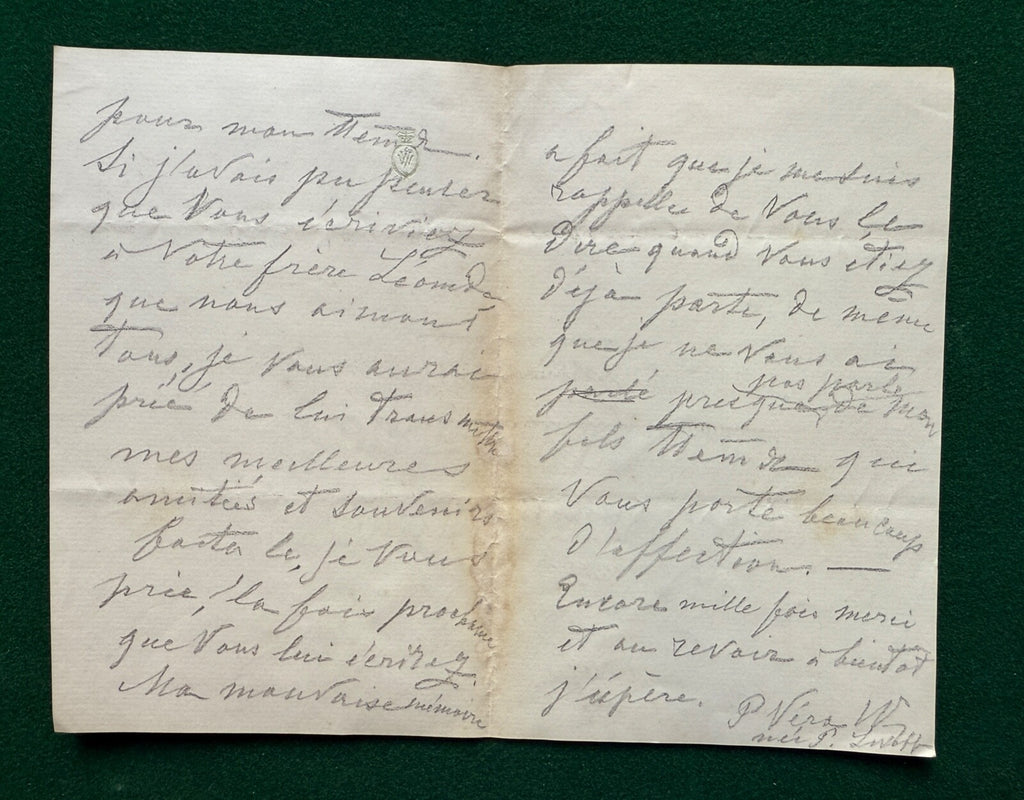 pour mon
Si j'avais pu penser
que Vous écriviez
à Votre frère
que nous aimons
Tous, je Vous aurai
prié de lui transmettre
mes meilleures
amitiés et souvenirs
faites le, je Vous
prie, la fois prochaine
que Vous lui écrirez.
Ma mauvaise mémoire
a fait que je me suis
rappellée de Vous le
Dire quand Vous étiez
Déjà partie, de même
que je ne Vous ai
pas parlé
parlé presque, de mon
fils qui
Vous porte beaucoup
D'affection. —
Encore mille fois merci
et au revoir à bientôt
j'espère.
P Véra W
née P.